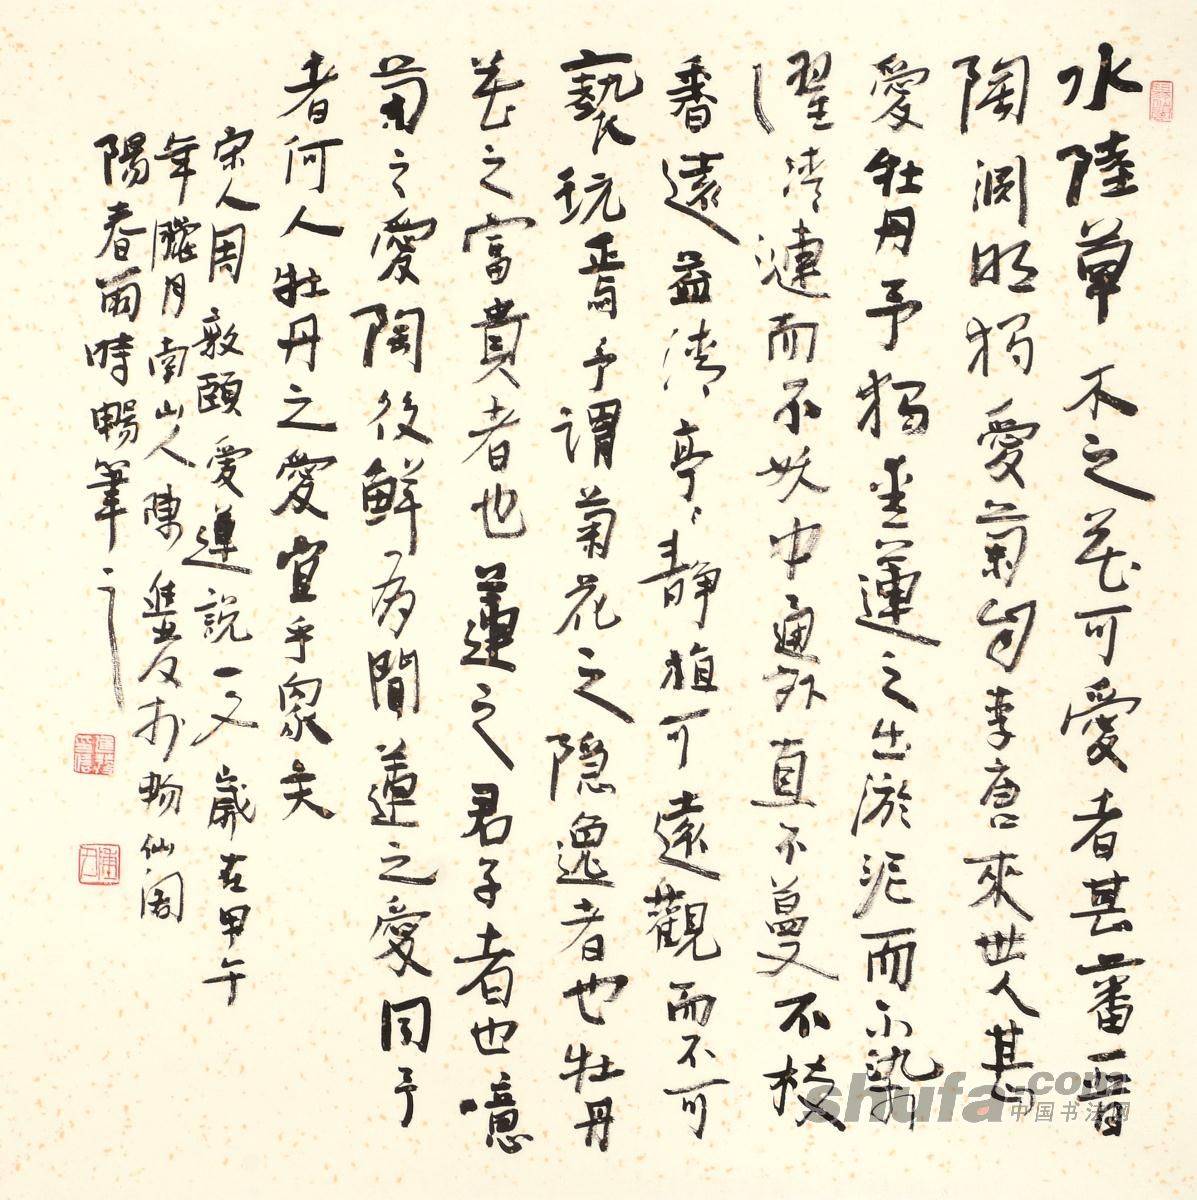 水陸草木之花可愛者甚蕃晉
陶淵明獨愛菊自李唐來世人甚
愛牡丹予獨愛蓮之出淤泥而不染
濯清漣而不妖中通外直不蔓不枝
香遠益清亭〻靜植可遠觀而不可
褻玩焉予謂菊花之隱逸者也牡丹
花之富貴者也蓮之君子者也噫
菊之愛陶後鮮有聞蓮之愛同予
者何人牡丹之愛宜乎眾矣
宋人周敦頤愛蓮說一文歲在甲午
年臘月南山人陳友於暢仙閣
陽春雨時暢筆之
shufa.com
中国书法网